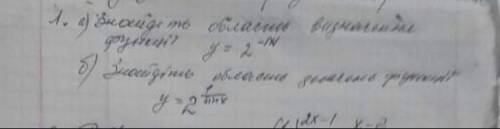 1. а) Знайдіть область визначення
функції y = 2^{-|x|}
б) Знайдіть область значень функції
y = 2^{\frac{1}{\sin x}}
2x-1 x-2